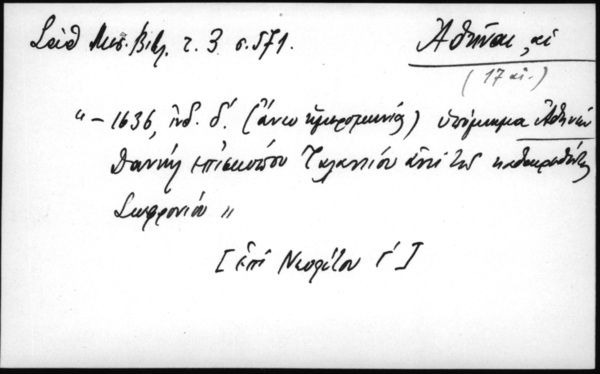 Σάθ Μεσ. Βιβλ. τ. 3 σ. 571.
Ἀθῆναι, αἱ
(17 αἰ.)
"– 1636, ἰνδ. δ'. (ἄνευ ἡμερομηνίας) ὑπόμνημα Ἀθηνῶν
Δανιὴλ ἐπισκόπου Ταλαντίου ἀντὶ τοῦ καθαιρεθέντος
Σωφρονίου"
[ἐπὶ Νεοφύτου Γ']